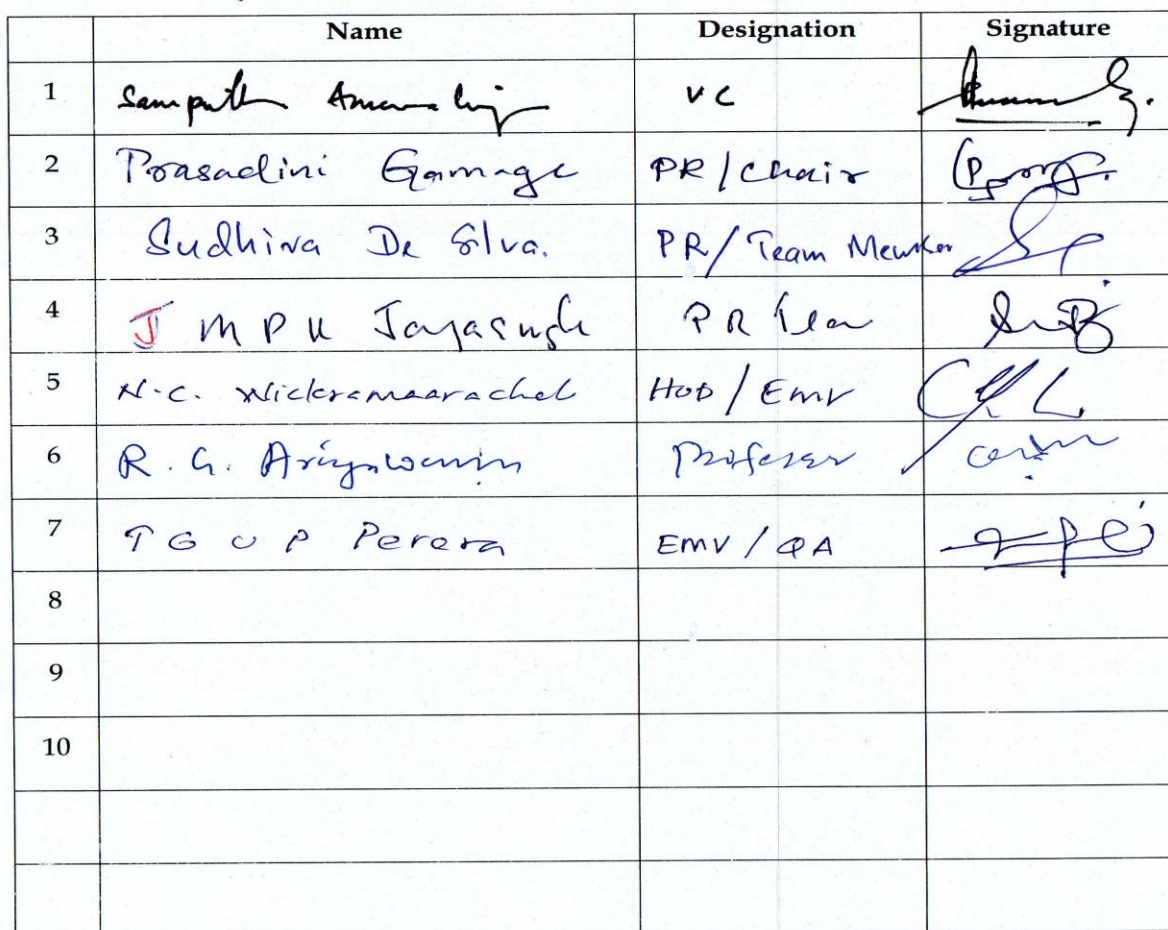 Name Designation Signature
1 Sampath VC
2 Prasadini Gamage PR/Chair
3 Sudhira De Silva. PR/Team Member
4 J M P K Jayasingh PR Team
5 N.C. Wickramaarachchi HOD/EMV
6 R. G. Professor
7 T G U P Perera EMV/QA
8
9
10